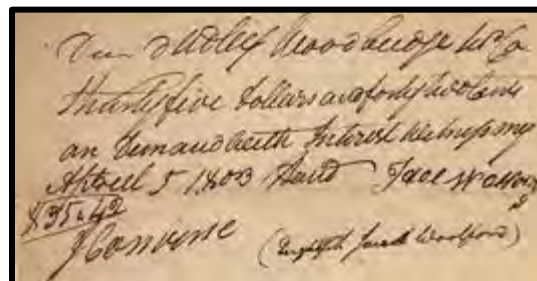 Due Dudley Woodbridge & Co
Thirtyfive Dollars and forty two Cents
on Demand with Interest Witness my
April 5 1803
$35.42
J Converse ( Jacob Woolford)